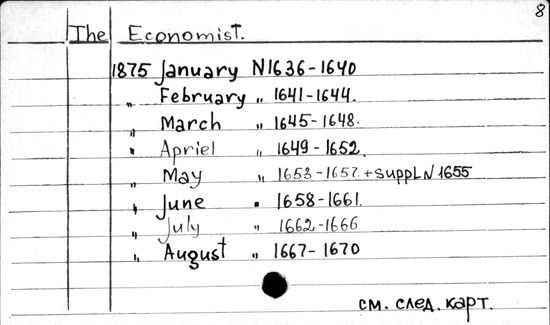 8
The Economist.
1875 January N1636-1640
„ February „ 1641-1644.
„ March „ 1645-1648.
„ Apriel „ 1649-1652.
„ May „ 1653-1657.+suppl N 1655
„ June „ 1658-1661.
„ July „ 1662-1666
„ August „ 1667-1670
см. след. карт.